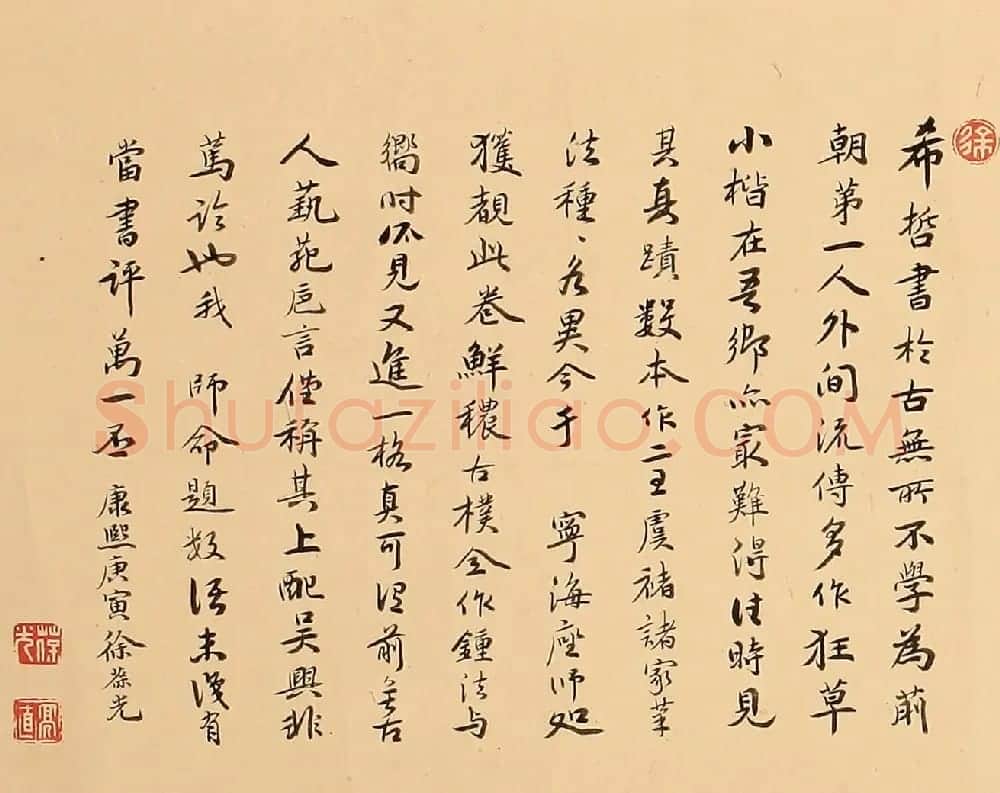 希哲書於古無所不學為前
朝第一人外间流傳多作狂草
小楷在吾鄉亦最難得往時見
其真蹟數本作二王虞褚諸家筆
法種、各異今于 寧海座师处
獲覩此卷鮮穠古樸全作鍾法与
嚮时所見又進一格真可谓前無古
人藝苑卮言僅稱其上配吴興非
篤论也我 師命題数语未識有
當書评萬一否 康熙庚寅徐葆光
徐
葆光
亮直
Shufaziliao.COM